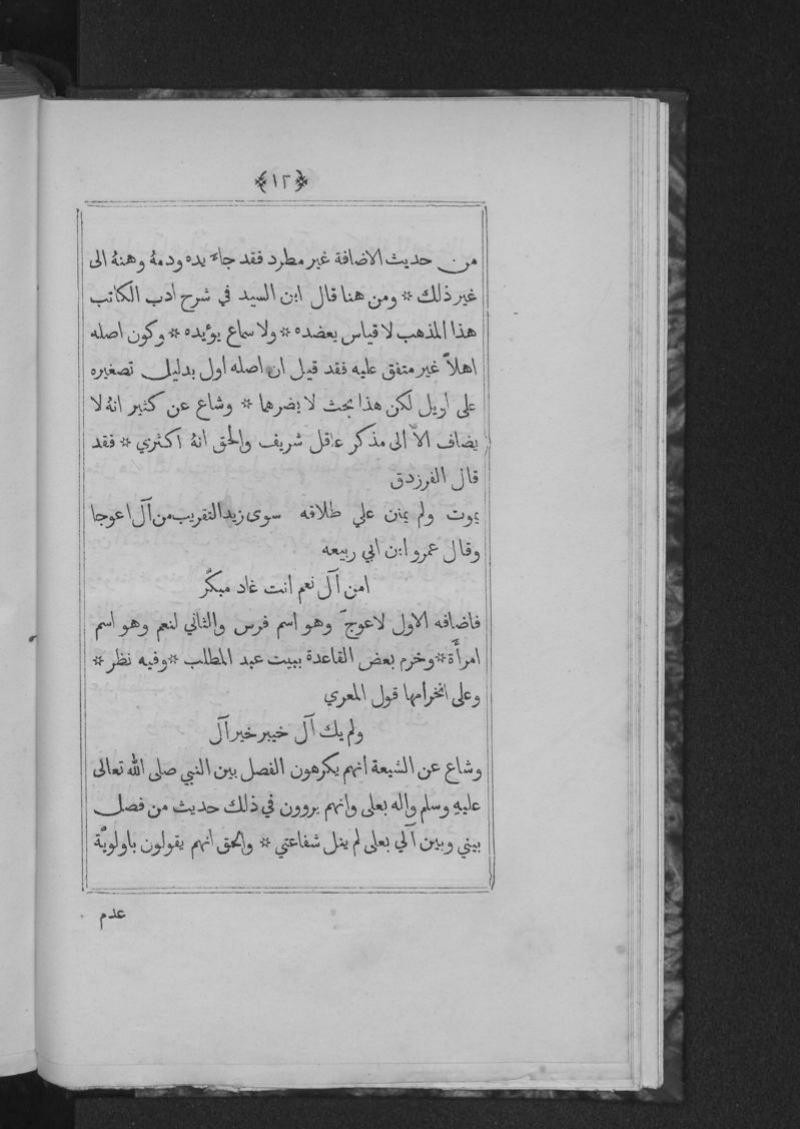 ﴿١٢﴾
من حديث الاضافة غير مطرد فقد جاء يده ودمهُ وهنهُ الى
غير ذلك * ومن هنا قال ابن السيد في شرح ادب الكاتب
هذا المذهب لا قياس يعضده * ولا سماع يؤيده * وكون اصله
اهلاً غير متفق عليه فقد قيل ان اصله اول بدليل تصغيره
على اويل لكن هذا بحث لا يضرها * وشاع عن كثير انهُ لا
يضاف الاّ الى مذكر عاقل شريف والحق انهُ اكثري * فقد
قال الفرزدق
يموت ولم يمنن علي طلاقه سوى زيد التقريب من آل اعوجا
وقال عمرو ابن ابي ربيعه
امن آل نعم انت غاد مبكّر
فاضافه الاول لاعوج وهو اسم فرس والثاني لنعم وهو اسم
امرأة * وخرم بعض القاعدة ببيت عبد المطلب * وفيه نظر *
وعلى انخرامها قول المعري
ولم يك آل خيبر خير آل
وشاع عن الشيعة انهم يكرهون الفصل بين النبي صلى الله تعالى
عليهِ وسلم وآله بعلى وانهم يروون في ذلك حديث من فصل
بيني وبين آلي بعلى لم ينل شفاعتي * والحق انهم يقولون باولويّة
عدم